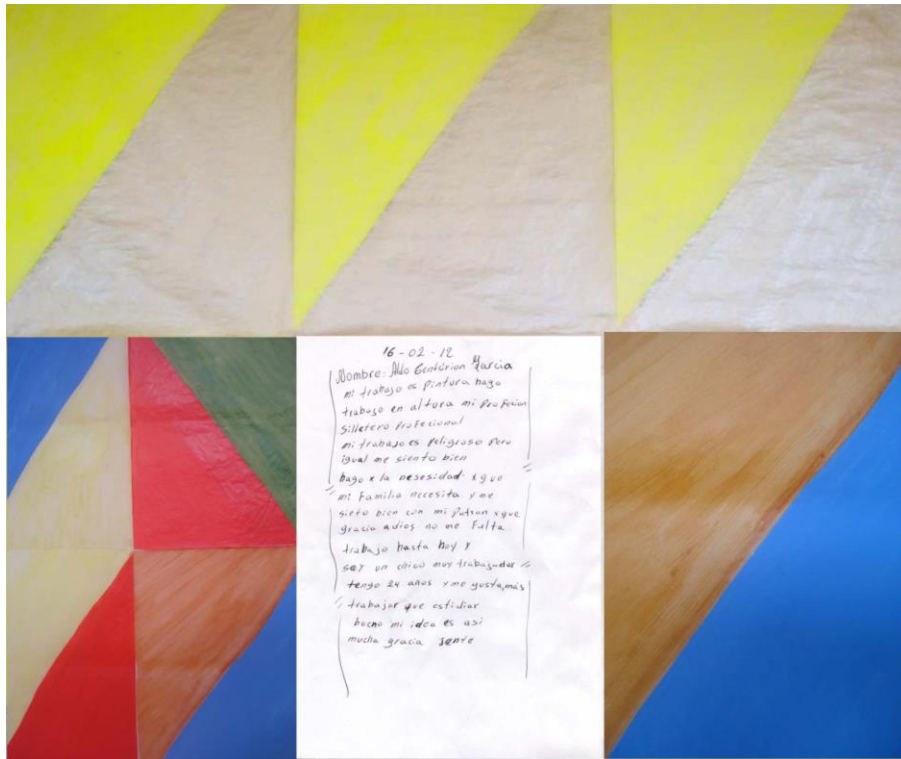 16-02-12
Nombre: Aldo Centurion Garcia
mi trabajo es pintura hago
trabajo en altura mi Profecion
Silletero Profecional
mi trabajo es peligroso pero
igual me siento bien
hago x la nesesidad x que
mi Familia necesita y me
sieto bien con mi patron x que
gracia adios no me Falta
trabajo hasta hoy y
soy un chico muy trabajador
tengo 24 años y me gusta más
trabajar que estidiar
bueno mi idea es asi
mucha gracia jente